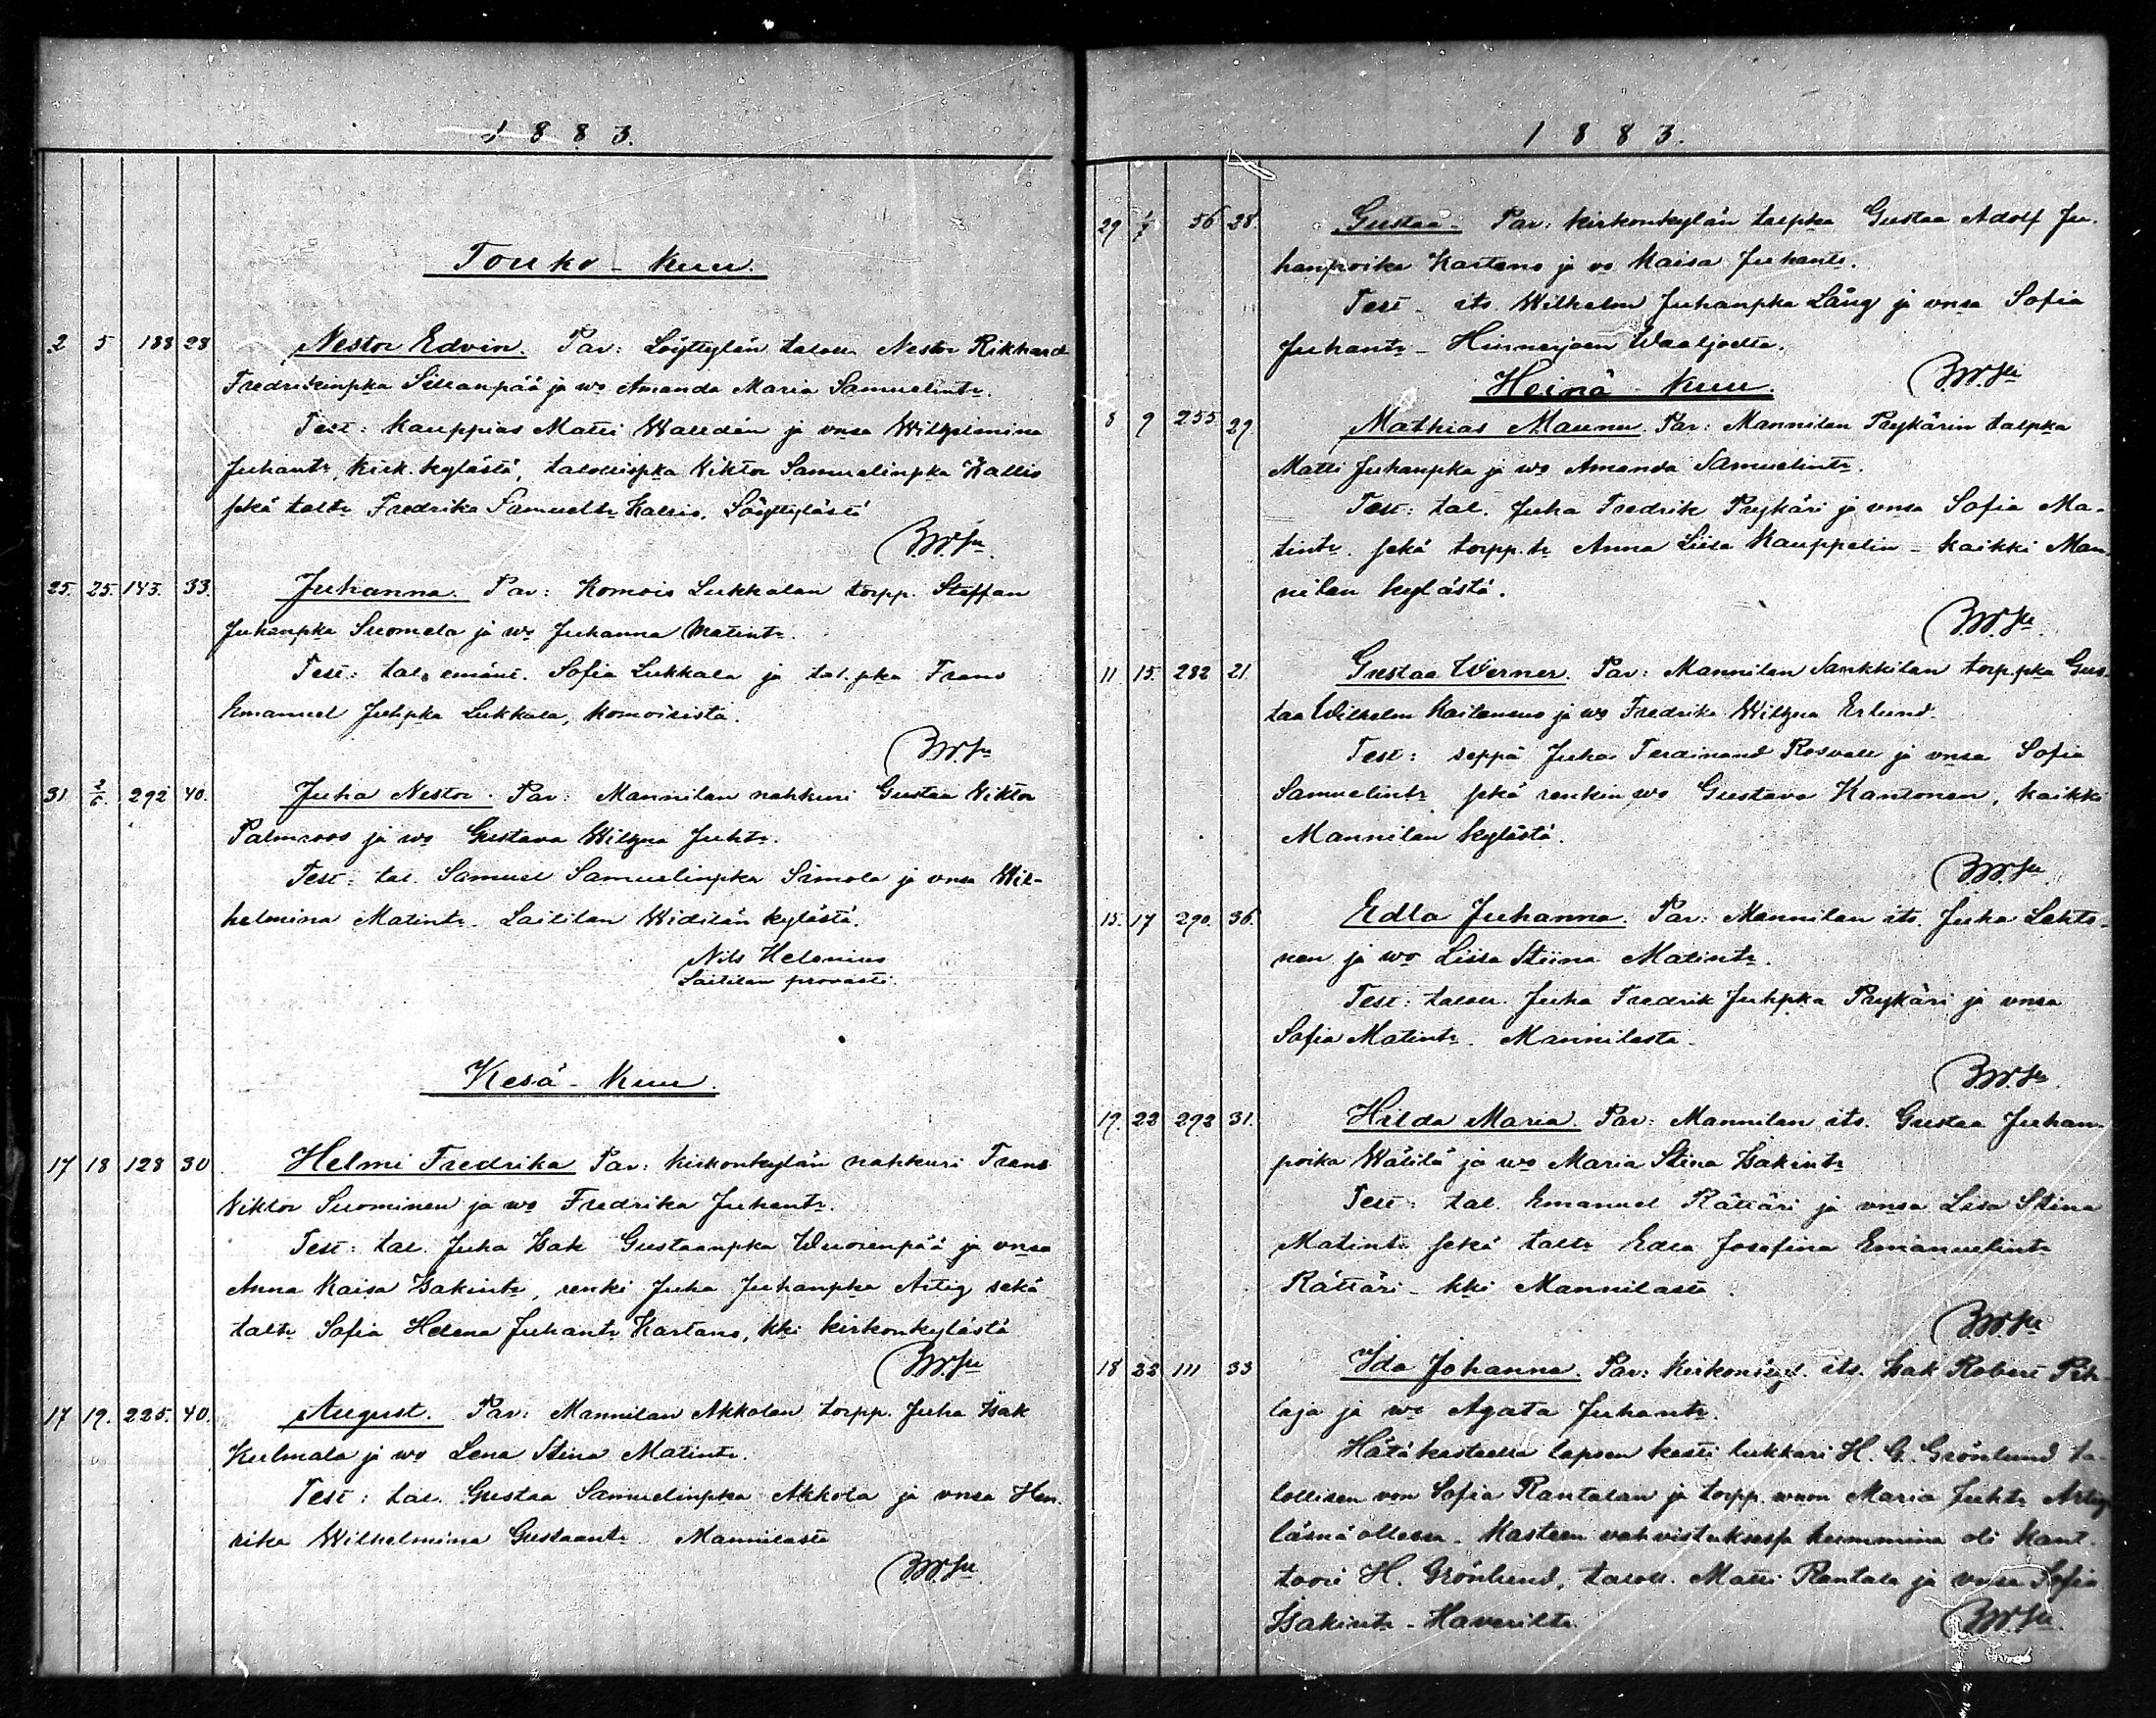 1883.
Touko-Kuu.
2 5 188 28 Nestor Edvin. Par: Löyttylän taloll. Nestor Rikhard
Fredrikinpka Sillanpää ja wo Amanda Maria Samuelintr.
Test: Kauppias Matti Walldén ja vnsa Wilhelmina
Juhantr, kirk. kylästä, talollispka Viktor Samuelinpka Kallio
sekä taltr Fredrika Samueltr Kallio, Löyttylästä
25. 25. 143. 33. Juhanna. Par: Komois Lukkalan torpp. Staffan
Juhanpka Suomela ja wo Juhanna Matintr.
Test: tal. emänt. Sofia Lukkala ja tal. pka Frans
Emanuel Juhpka Lukkala, Komoisista.
31 2/6 292 40. Juha Nestor. Par: Mannilan nahkuri Gustaa Viktor
Palmroos ja wo Gustava Wilhna Juhtr.
Test: tal. Samuel Samuelinpka Simola ja vnsa Wil-
helmina Matintr. Laitilan Widilän kylästä.
Nils Helenius
Laitilan provasti.
Kesä-Kuu.
17 18 128 30 Helmi Fredrika Par: kirkonkylän nahkuri Frans
Viktor Suominen ja wo Fredrika Juhantr.
Test: tal. Juha Isak Gustaanpka Wuorenpää ja vnsa
Anna Kaisa Isakintr, renki Juha Juhanpka Artig sekä
taltr Sofia Helena Juhantr Kartano, kki kirkonkylästä
17 19. 225. 40. August. Par: Mannilan Akkolan torpp. Juha Isak
Kulmala ja wo Lena Stina Matintr.
Test: tal. Gustaa Samuelinpka Akkola ja vnsa Hen-
rika Wilhelmina Gustaantr. Mannilasta
1883.
29 1/7 56 28. Gustaa. Par: kirkonkylän talpka Gustaa Adolf Ju-
hanpoika Kartano ja vo Maisa Juhantr.
Test. its. Wilhelm Juhanpka Lång ja vnsa Sofia
Juhantr - Hinnerjoen Waaljoelta.
Heinä-Kuu.
8 9 255 29. Mathias Maunu. Par: Mannilan Prykärin talpka
Matti Juhanpka ja wo Amanda Samuelintr.
Test: tal. Juha Fredrik Prykäri ja vnsa Sofia Ma-
tintr. sekä torpp. tr Anna Liisa Kauppelin - kaikki Man-
nilan kylästä.
11 15. 282 21. Gustaa Werner. Par: Mannilan Sankkilan torp. pka Gus-
taa Wilhelm Kaitanen ja wo Fredrika Wilhna Erlund.
Test: seppä Juha Ferdinand Rosvall ja vnsa Sofia
Samuelintr sekä renkin wo Gustava Kantonen, kaikki
Mannilan kylästä.
15. 17 290. 36. Edla Juhanna. Par: Mannilan its. Juha Lehto-
nen ja wo Liisa Stiina Matintr.
Test: taloll. Juha Fredrik Juhpka Prykäri ja vnsa
Sofia Matintr. Mannilasta.
19. 22 292 31. Hilda Maria. Par: Mannilan its. Gustaa Juhan-
poika Wätilä ja wo Maria Stina Isakintr
Test: tal. Emanuel Rättäri ja vnsa Lisa Stina
Matintr sekä taltr Edla Josefina Emanuelintr
Rättäri - kki Mannilasta.
18 22 111 33 Ida Johanna. Par: Kirkonkyl. its. Isak Robert Pih-
laja ja wo Agata Juhantr.
Hätäkasteella lapsen kasti lukkari H. G. Grönlund ta-
lollisen von Sofia Rantalan ja torpp. waon Maria Juhtr Artig
läsnä ollessa. Kasteen vahvistuksessa kummina oli kant-
toori H. Grönlund, taloll. Matti Rantala ja vnsa Sofia
Isakintr - Haverilta.